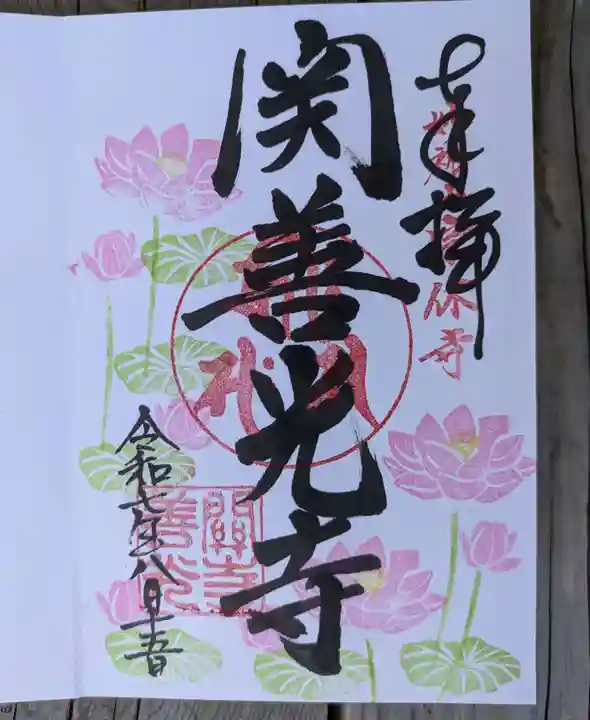 奉拝
関善光寺
令和七年八月十五日
關善光寺